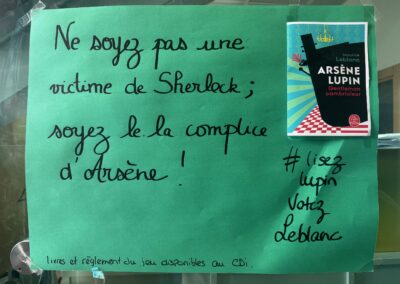 Ne soyez pas une
victime de Sherlock ;
soyez le.la complice
d'Arsène !
Maurice
Leblanc
ARSÈNE
LUPIN
Gentleman
cambrioleur
#Lisez
Lupin
Votez
Leblanc
livres et règlement du jeu disponibles au CDi.